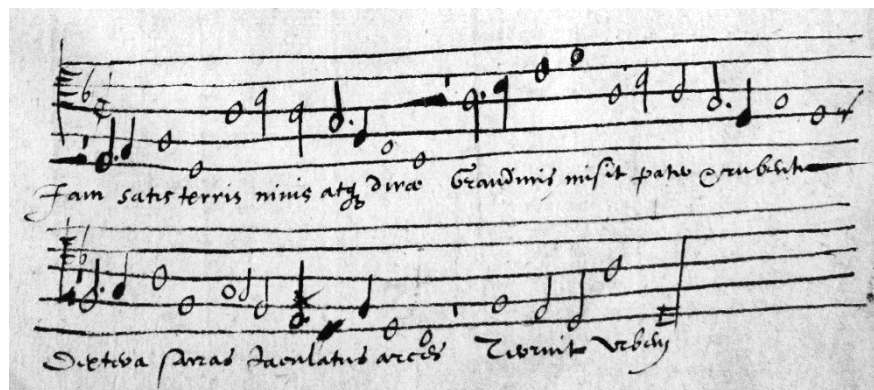 Jam satis terris nivis atq dirae Grandinis misit pater & rubente
Dextera sacras Jaculatus arces Terruit Urbem